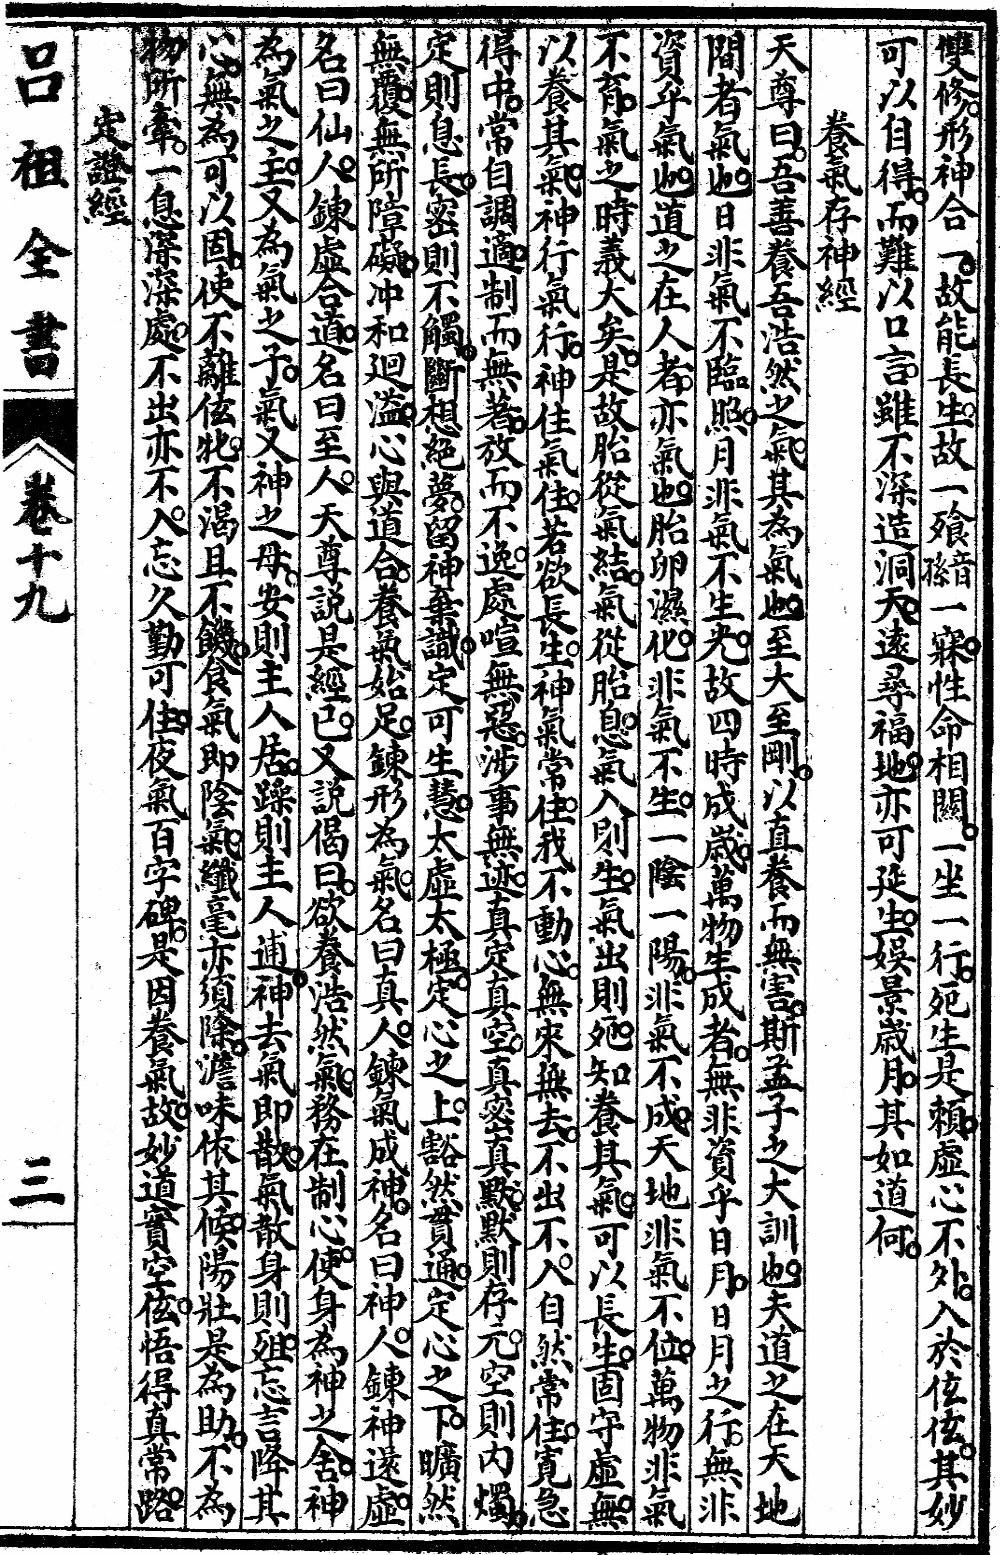 雙修形神合一故能長生故一飱音孫一寐性命相關一坐一行死生是賴虛心不外入於伭伭其妙
可以自得而難以口言雖不深造洞天遠尋福地亦可延生娛景歲月其如道何
養氣存神經
天尊曰吾善養吾浩然之氣其為氣也至大至剛以直養而無害斯孟子之大訓也夫道之在天地
間者氣也日非氣不臨照月非氣不生光故四時成歲萬物生成者無非資乎日月日月之行無非
資乎氣也道之在人者亦氣也胎卵濕化非氣不生一陰一陽非氣不成天地非氣不位萬物非氣
不育氣之時義大矣是故胎從氣結氣從胎息氣入則生氣出則死知養其氣可以長生固守虛無
以養其氣神行氣行神住氣住若欲長生神氣常住我不動心無來無去不出不入自然常住寬急
得中常自調適制而無著放而不逸處喧無惡涉事無迹真定真空真密真默默則存元空則內燭
定則息長密則不觸斷想絕夢留神棄識定可生慧太虛太極定心之上豁然貫通定心之下曠然
無覆無所障礙冲和迴溢心與道合養氣始足鍊形為氣名曰真人鍊氣成神名曰神人鍊神還虛
名曰仙人鍊虛合道名曰至人天尊說是經已又說偈曰欲養浩然氣務在制心使身為神之舍神
為氣之主又為氣之子氣又神之母安則主人居躁則主人逋神去氣即散氣散身則殂忘言降其
心無為可以固使不離伭牝不渴且不饑食氣即陰氣纖毫亦須除澹味依其候陽壯是為助不為
物所牽一息深深處不出亦不入忘久勤可住夜氣百字碑是因養氣故妙道實空伭悟得真常路
定證經
呂祖全書
卷十九
三